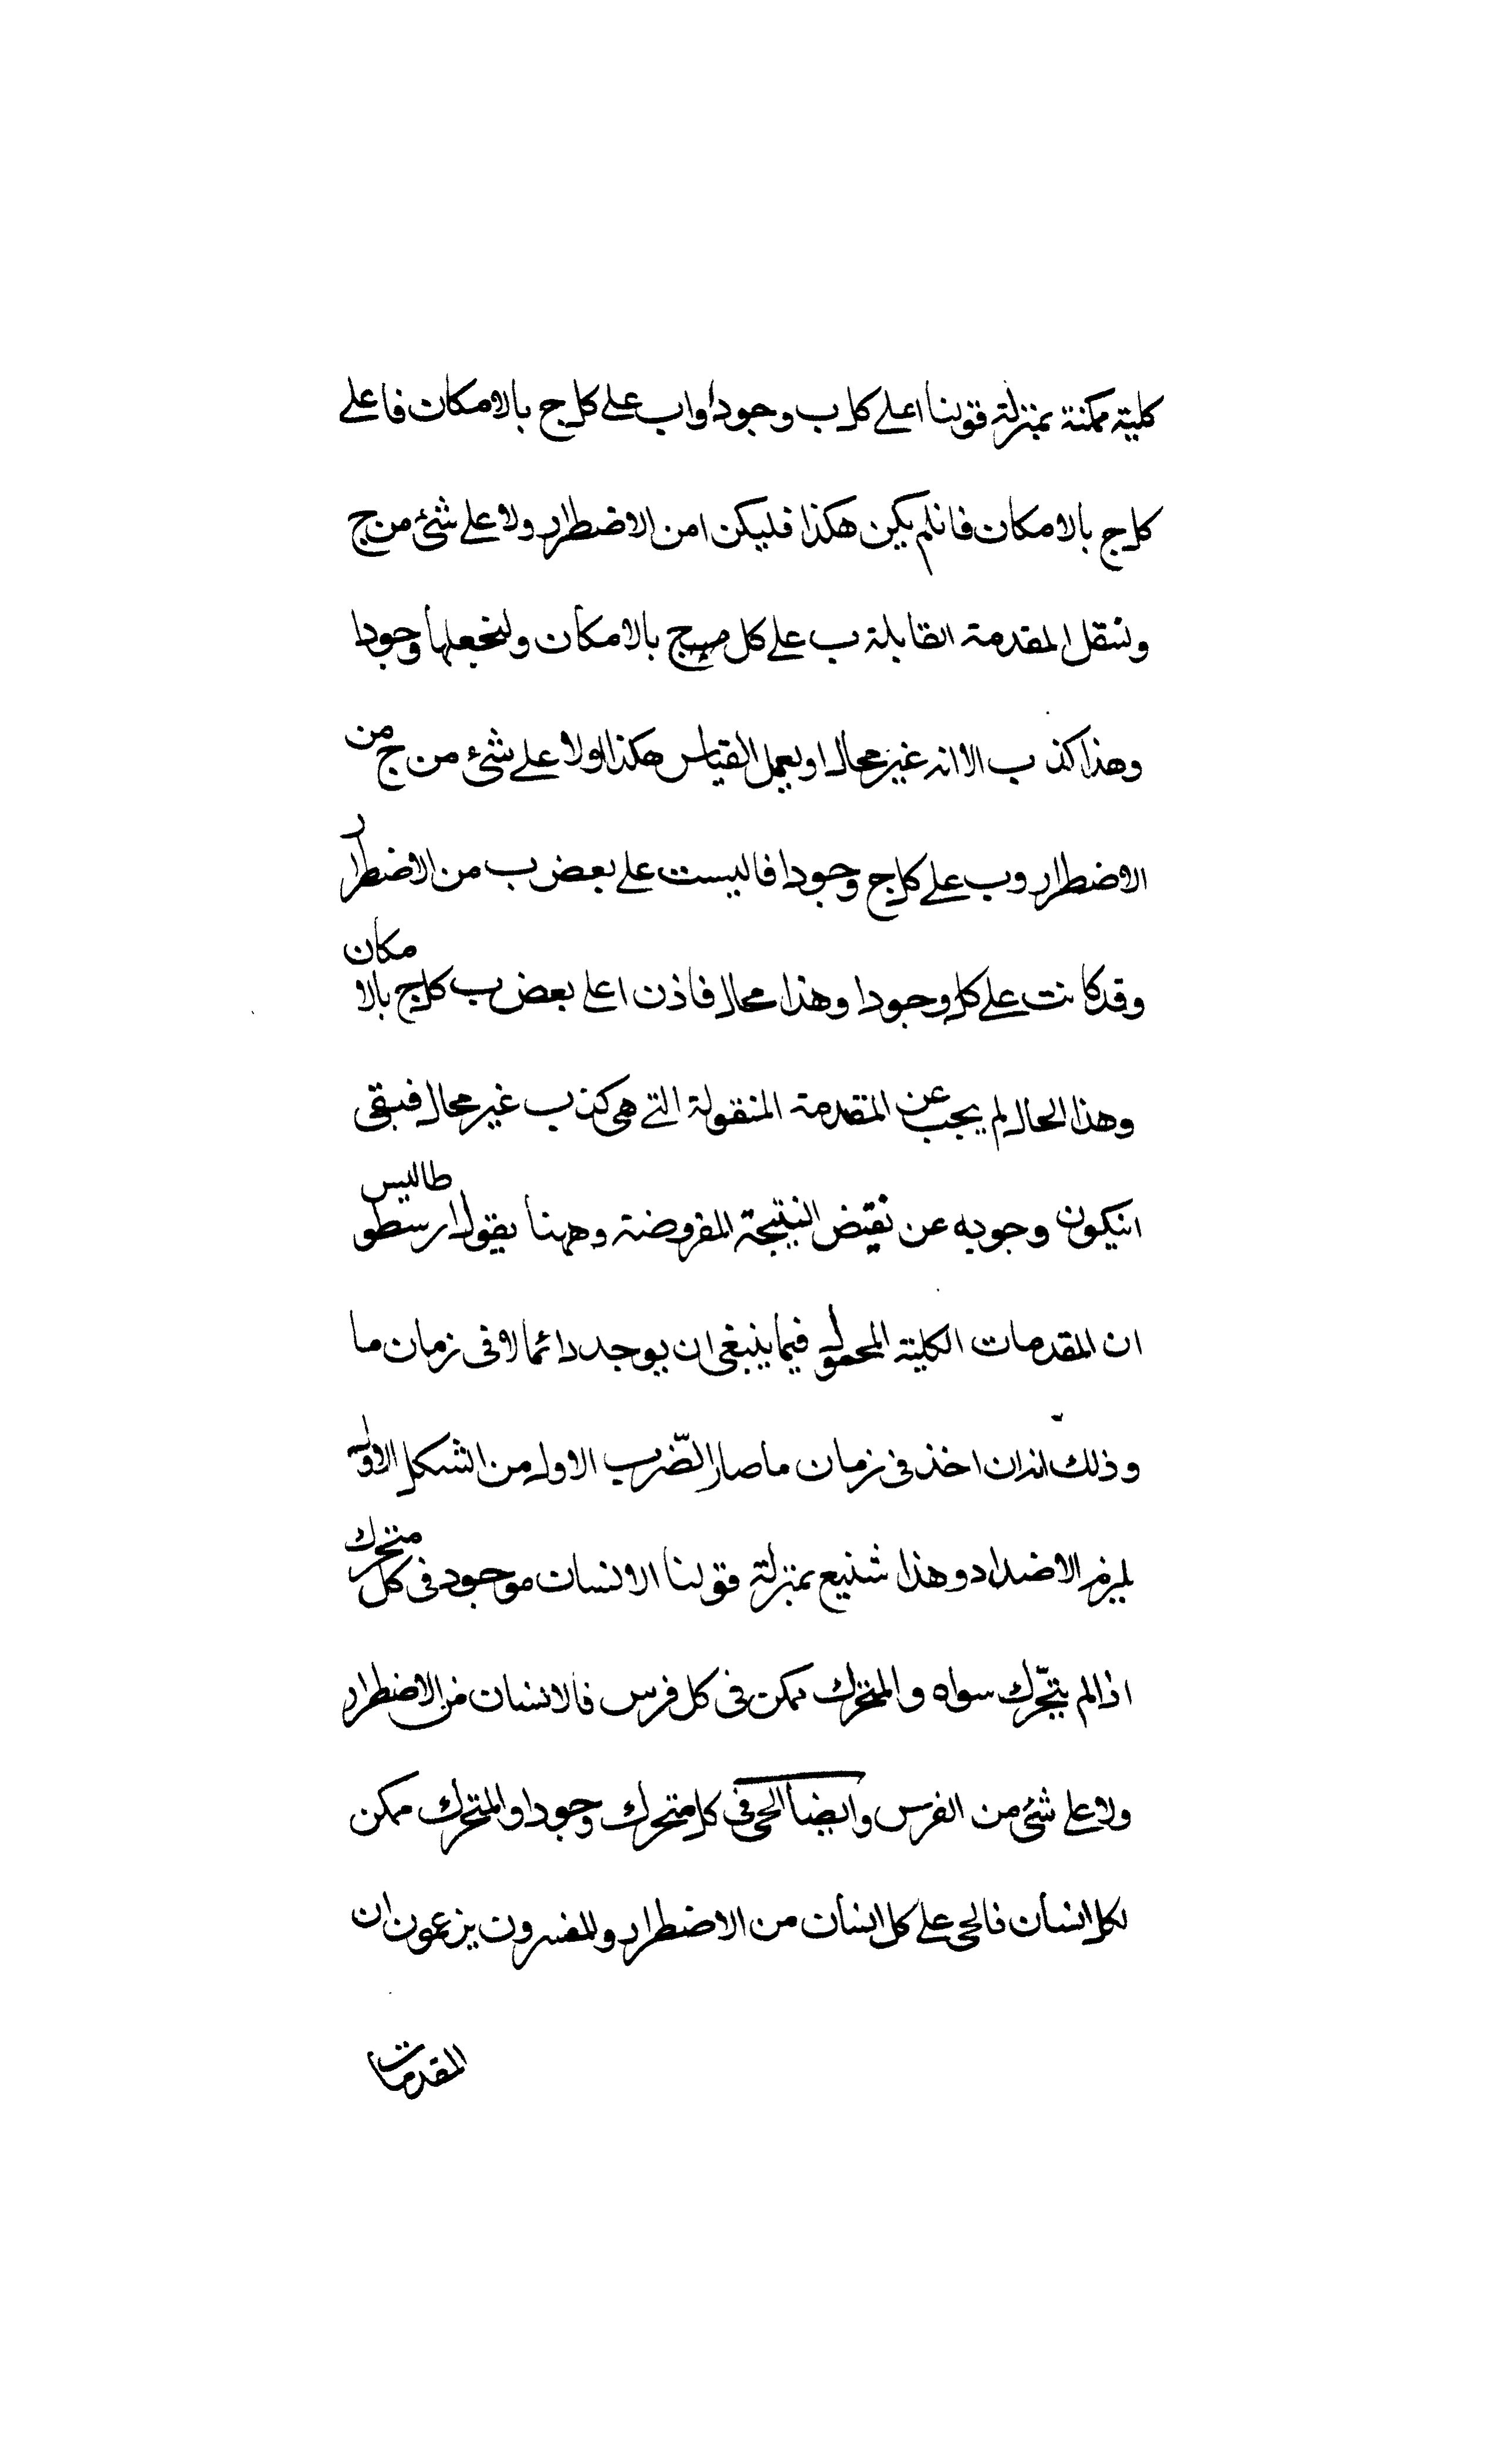 كلية ممكنة بمنزلة قولنا ا على كل ب وجودا و ا ب على كل ج بالامكان فا على
كل ج بالامكان فانلم يكن هكذا فليكن ا من الاضطرار ولا على شئ من ج
وننقل المقدمة القابلة ب على كل ج بالامكان ولنجعلها وجودا
وهذا كذب الا انه غير محال ا ويعمل القياس هكذا ا ولا على شئ من ج من
الاضطرار وب على كل ج وجودا فا ليست على بعض ب من الاضطرار
وقد كانت على كل وجودا وهذا محال فاذن ا على بعض ب كل ج بالامكان
وهذا الحال لم يجب عن المقدمة المنقولة التى هى كذب غير محال فبقى
انيكون وجوبه عن نقيض النتيجة المفروضة وههنا يقول ارسطوطاليس
ان المقدمات الكلية المحمول فيما ينبغى ان يوجد دائما لا فى زمان ما
وذلك انه ان اخذ فى زمان ما صار الضّرب الاول من الشكل الاول
يلزم الاضداد وهذا شنيع بمنزلة قولنا الانسان موجود فى كل متحرك
اذا لم يتحّرك سواه والمتحرك ممكن فى كل فرس فالانسان من الاضطرار
ولا على شئ من الفرس وايضا الحى فى كل متحرك وجودا والمتحرك ممكن
لكل انسان فالحى على كل انسان من الاضطرار والمفسرون يزعمون ان
المقدمات